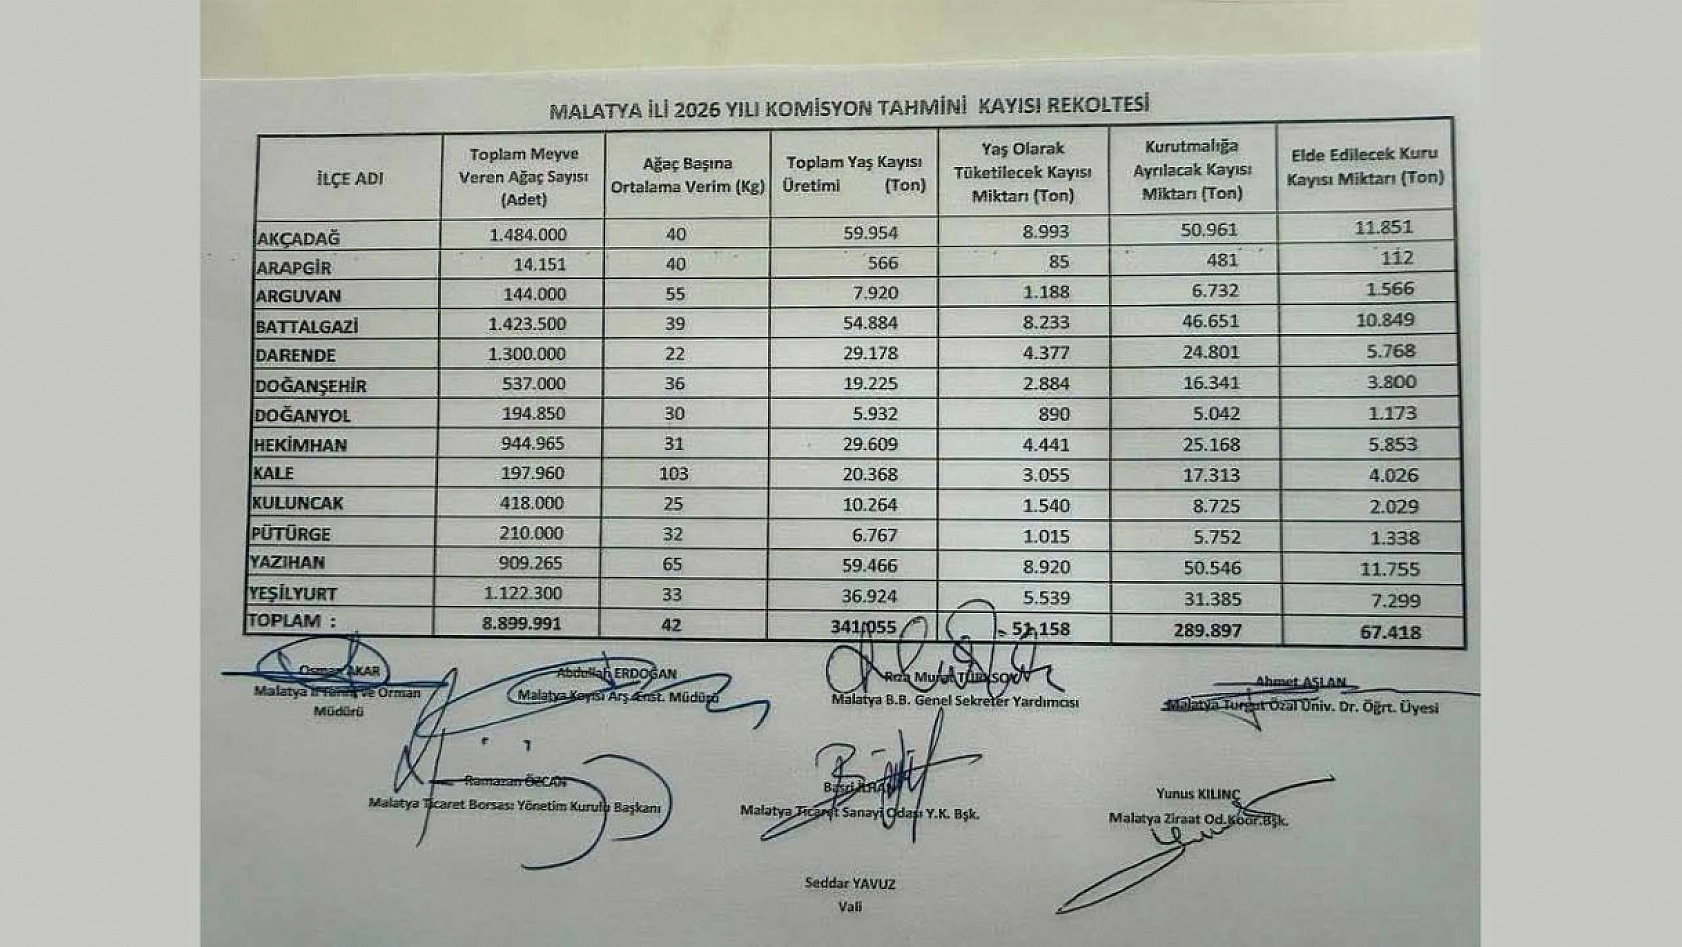 MALATYA İLİ 2026 YILI KOMİSYON TAHMİNİ KAYISI REKOLTESİ
İLÇE ADI Toplam Meyve Veren Ağaç Sayısı (Adet) Ağaç Başına Ortalama Verim (Kg) Toplam Yaş Kayısı Üretimi (Ton) Yaş Olarak Tüketilecek Kayısı Miktarı (Ton) Kurutmalığa Ayrılacak Kayısı Miktarı (Ton) Elde Edilecek Kuru Kayısı Miktarı (Ton)
AKÇADAĞ 1.484.000 40 59.954 8.993 50.961 11.851
ARAPGİR 14.151 40 566 85 481 112
ARGUVAN 144.000 55 7.920 1.188 6.732 1.566
BATTALGAZİ 1.423.500 39 54.884 8.233 46.651 10.849
DARENDE 1.300.000 22 29.178 4.377 24.801 5.768
DOĞANŞEHİR 537.000 36 19.225 2.884 16.341 3.800
DOĞANYOL 194.850 30 5.932 890 5.042 1.173
HEKİMHAN 944.965 31 29.609 4.441 25.168 5.853
KALE 197.960 103 20.368 3.055 17.313 4.026
KULUNCAK 418.000 25 10.264 1.540 8.725 2.029
PÜTÜRGE 210.000 32 6.767 1.015 5.752 1.338
YAZIHAN 909.265 65 59.466 8.920 50.546 11.755
YEŞİLYURT 1.122.300 33 36.924 5.539 31.385 7.299
TOPLAM : 8.899.991 42 341.055 51.158 289.897 67.418
Osman AKAR Abdullah ERDOĞAN Rıza Murat Ahmet ASLAN
Malatya İl Tarım ve Orman Müdürü Malatya Kayısı Arş. Enst. Müdürü Malatya B.B. Genel Sekreter Yardımcısı Malatya Turgut Özal Üniv. Dr. Öğrt. Üyesi
Ramazan ÖZCAN Basri İLHAN Yunus KILINÇ
Malatya Ticaret Borsası Yönetim Kurulu Başkanı Malatya Ticaret Sanayi Odası Y.K. Bşk. Malatya Ziraat Od.Koor.Bşk.
Seddar YAVUZ
Vali